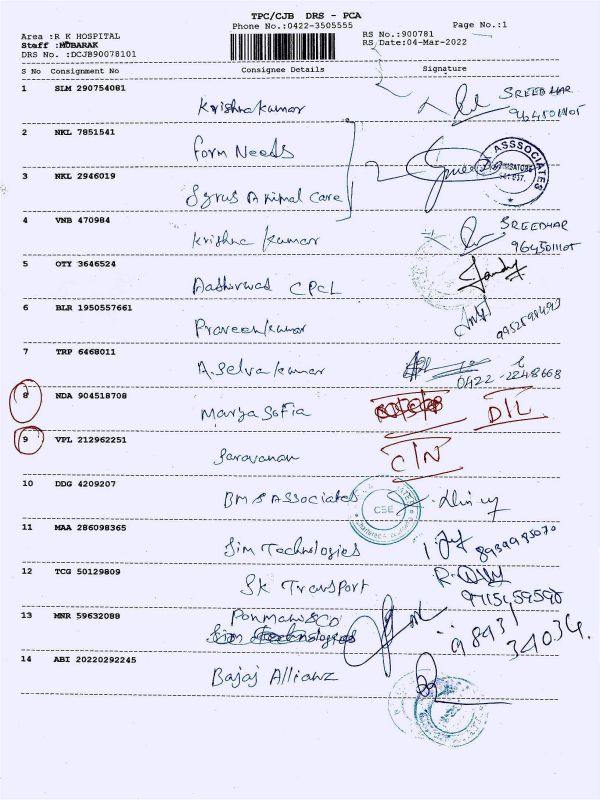 TPC/CJB DRS - PCA
Phone No.:0422-3505555
Page No.:1
Area :R K HOSPITAL
RS No.:900781
Staff :MUBARAK
RS Date:04-Mar-2022
DRS No. :DCJB90078101
S No Consignment No Consignee Details Signature
1 SLM 290754081
Krishnakumar
SREEDHAR
2 NKL 7851541
Form Needs
ASSSOCIATES
3 NKL 2946019
Syrus Animal Care
4 VNB 470984
Krishna kumar
SREEDHAR
5 OTY 3646524
CPCL
6 BLR 1950557661
Praveenkumar
7 TRP 6468011
A.Selvakumar
0422-2248668
8 NDA 904518708
Marya Sofia
D/L
9 VPL 212962251
Saravanan
C/N
10 DDG 4209207
BMS Associates
CBE
11 MAA 286098365
Sim Technologies
8939985070
12 TCG 50129809
SK Transport
9715459590
13 MNR 59632088
98431
34034
14 ABI 20220292245
Bajaj Allianz